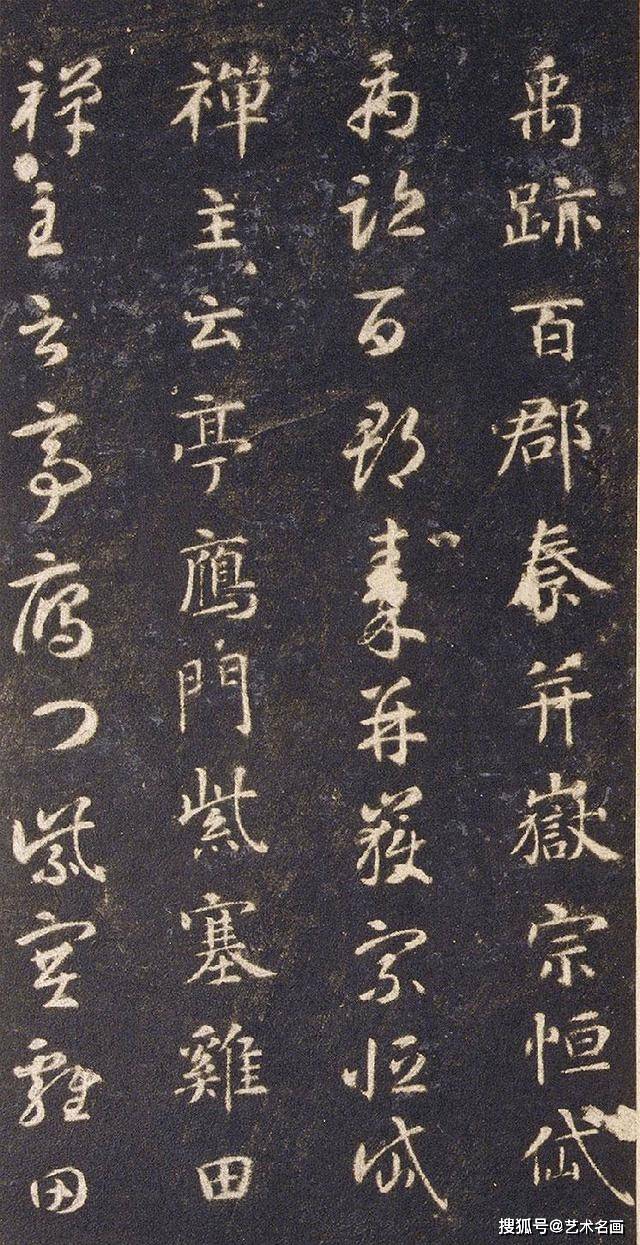 禹跡百郡秦并嶽宗恒岱
禹跡百郡秦并嶽宗恒岱
禪主云亭鴈門紫塞雞田
禪主云亭鴈門紫塞雞田
搜狐号@艺术名画